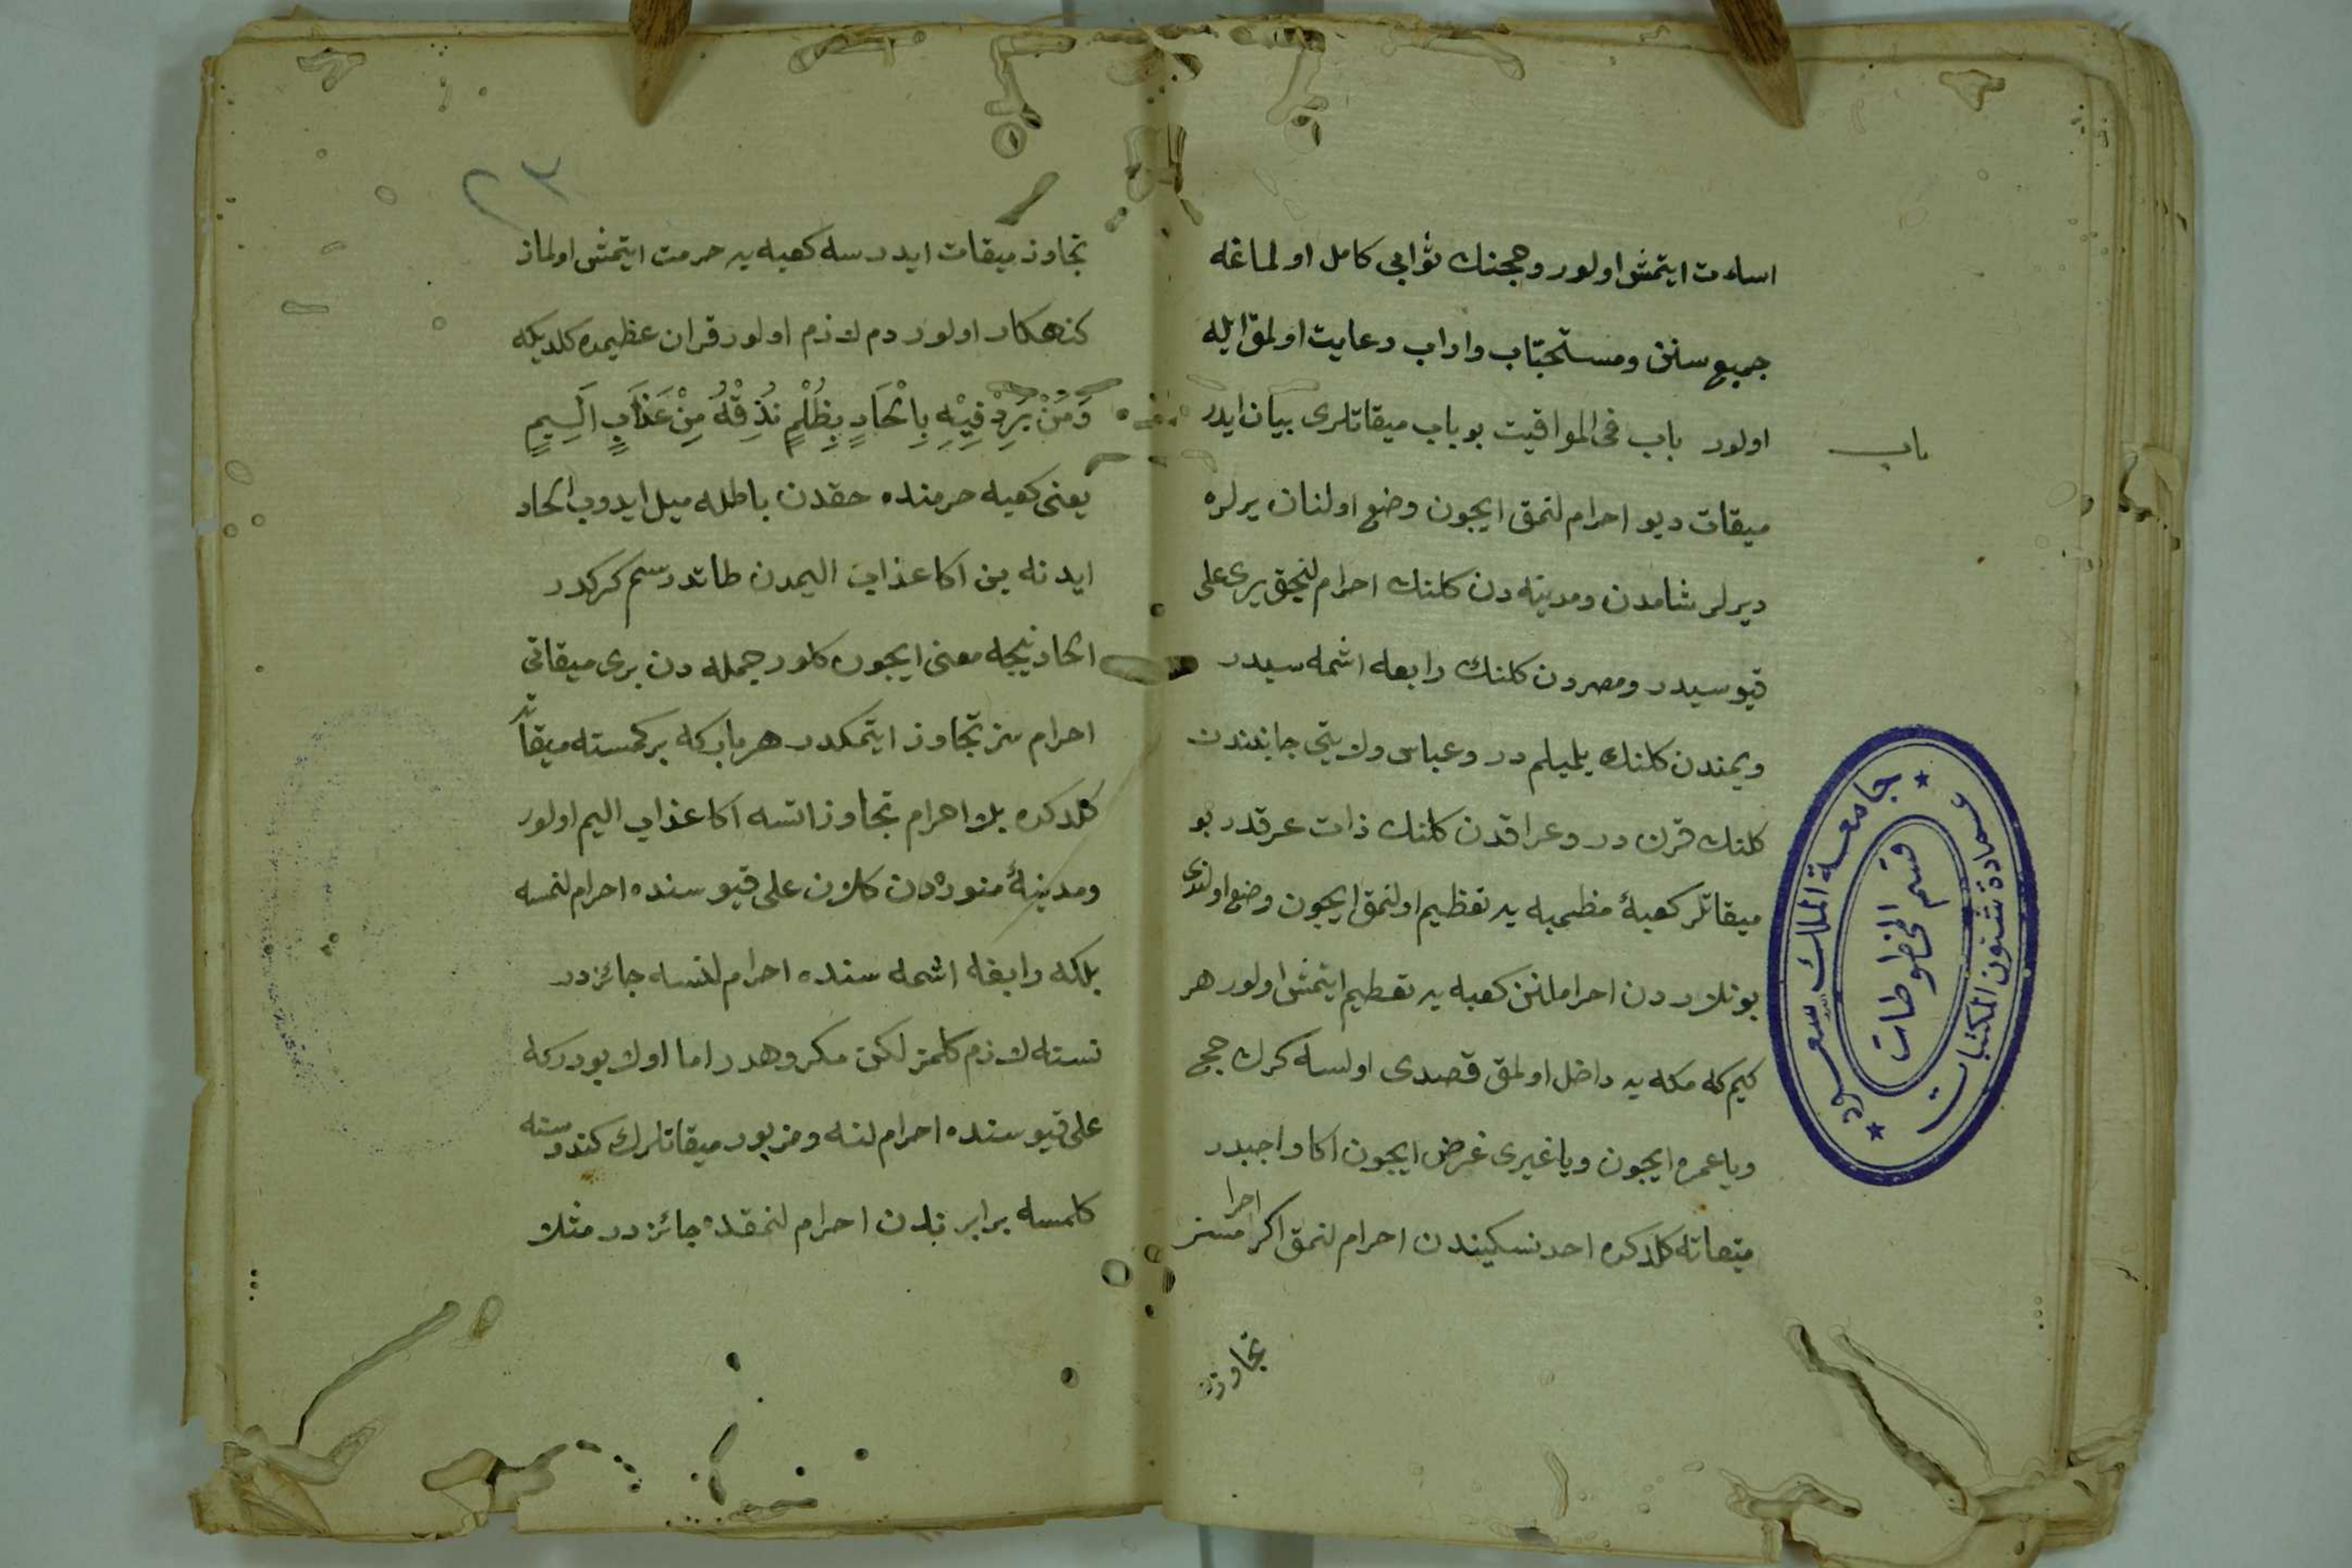 اساءت ايتمش اولور وحجنك ثوابي كامل اولماغه
جميع سنن ومستحبّاب واداب رعايت اولمق ايله
اولور باب فى المواقيت بو باب ميقاتلرى بيان ايدر
باب
ميقات ديو احرام لنمق ايچون وضع اولنان يرلره
ديرلر شامدن ومدينه دن كلنك احرام لنيجق يرى على
قيوسيدر ومصردن كلنك رابعه اشمه سيدر
ويمندن كلنك يلميلم در وعباس ولايتى جانبندن
كلنك قرن در وعراقدن كلنك ذات عرقدر بو
ميقاتلر كعبۀ مظمبه يه تعظيم اولنمق ايچون وضع اولندى
بونلاردن احراملنن كعبه يه تعظيم ايتمش اولور هر
كيم كه مكه يه داخل اولمق قصدى اولسه كرك حج
ويا عمره ايچون ويا غيرى غرض ايچون اكا واجبدر
ميقاته كلدكده احد نسكيندن احرام لنمق اكر احرامسز
تجاوز
جامعة الملك سعود
عمادة شئون المكتبات
قسم المخطوطات
٢٣
تجاوز ميقات ايدرسه كعبه يه حرمت ايتمش اولماز
كنهكار اولور دم لازم اولور قران عظيمده كلديكه
وَمَنْ يُرِدْ فِيْهِ بِالْحَادٍ بِظُلْمٍ نُذِقْهُ مِنْ عَذَابٍ اَلِيمٍ
يعنى كعبه حرمنده حقدن باطله ميل ايدوب الحاد
ايدنه بن اكا عذاب اليمدن طاتدرسم كركدر
الحاد نيجه معنى ايچون كلور جمله دن برى ميقاتى
احرام سز تجاوز ايتمكدر هر بار كه بر كمسنه ميقاته
كلدكده بلا احرام تجاوز اتسه اكا عذاب اليم اولور
ومدينۀ منوره دن كلان على قيوسنده احرام لنمسه
بلكه رابغه اشمه سنده احرام لنسه جائزدر
نسنه لازم كلمز لكن مكروهدر اما اولا بودركه
على قيوسنده احرام لنه ومزبور ميقاتلرك كندوسنه
كلمسه برابرندن احرام لنمقده جائزدر مثلا